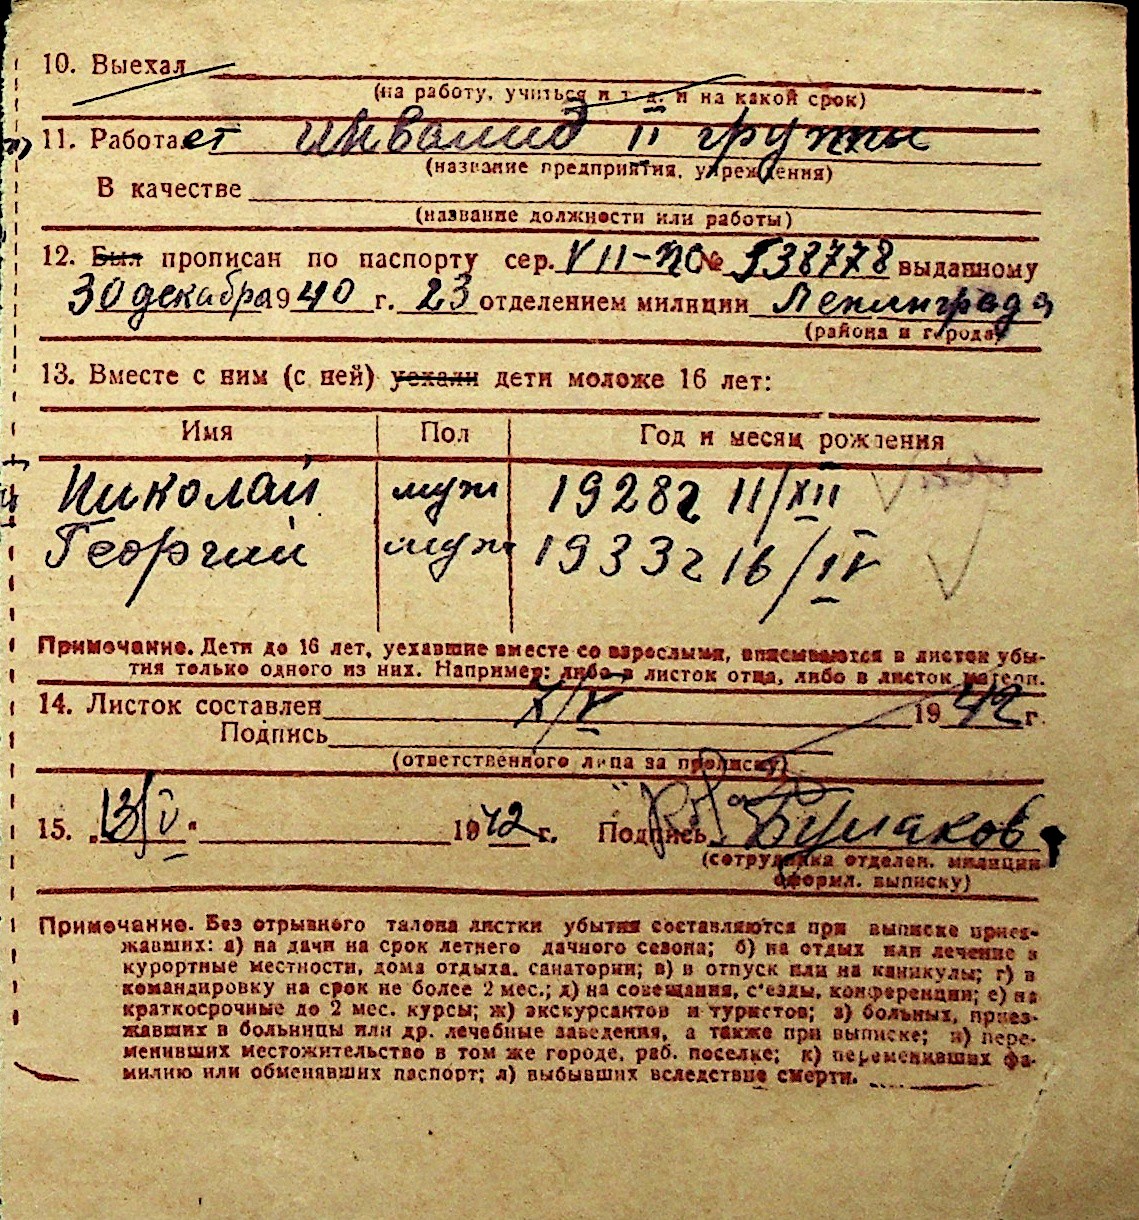 10. Выехал
(на работу, учиться и т. д. и на какой срок)
11. Работает инвалид II группы
(название предприятия, учреждения)
В качестве
(название должности или работы)
12. Был прописан по паспорту сер. VII-ПО № 538778 выданному
30 декабря 1940 г. 23 отделением милиции Ленинграда
(района и города)
13. Вместе с ним (с ней) уехали дети моложе 16 лет:
Имя Пол Год и месяц рождения
Николай муж 1928г 11/XII
Георгий муж 1933г 16/IV
Примечание. Дети до 16 лет, уехавшие вместе со взрослыми, вписываются в листок убы-
тия только одного из них. Например: либо в листок отца, либо в листок матери.
14. Листок составлен X/V 1942 г.
Подпись
(ответственного лица за прописку)
15. „13/V“ 1942 г. Подпись Бумаков
(сотрудника отделен. милиции
оформл. выписку)
Примечание. Без отрывного талона листки убытия составляются при выписке приез-
жавших: а) на дачи на срок летнего дачного сезона; б) на отдых или лечение в
курортные местности, дома отдыха, санатории; в) в отпуск или на каникулы; г) в
командировку на срок не более 2 мес.; д) на совещания, с'езды, конференции; е) на
краткосрочные до 2 мес. курсы; ж) экскурсантов и туристов; з) больных, приез-
жавших в больницы или др. лечебные заведения, а также при выписке; и) пере-
менивших местожительство в том же городе, раб. поселке; к) переменивших фа-
милию или обменявших паспорт; л) выбывших вследствие смерти.